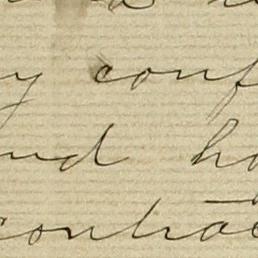 y conf
nd ho
contrac